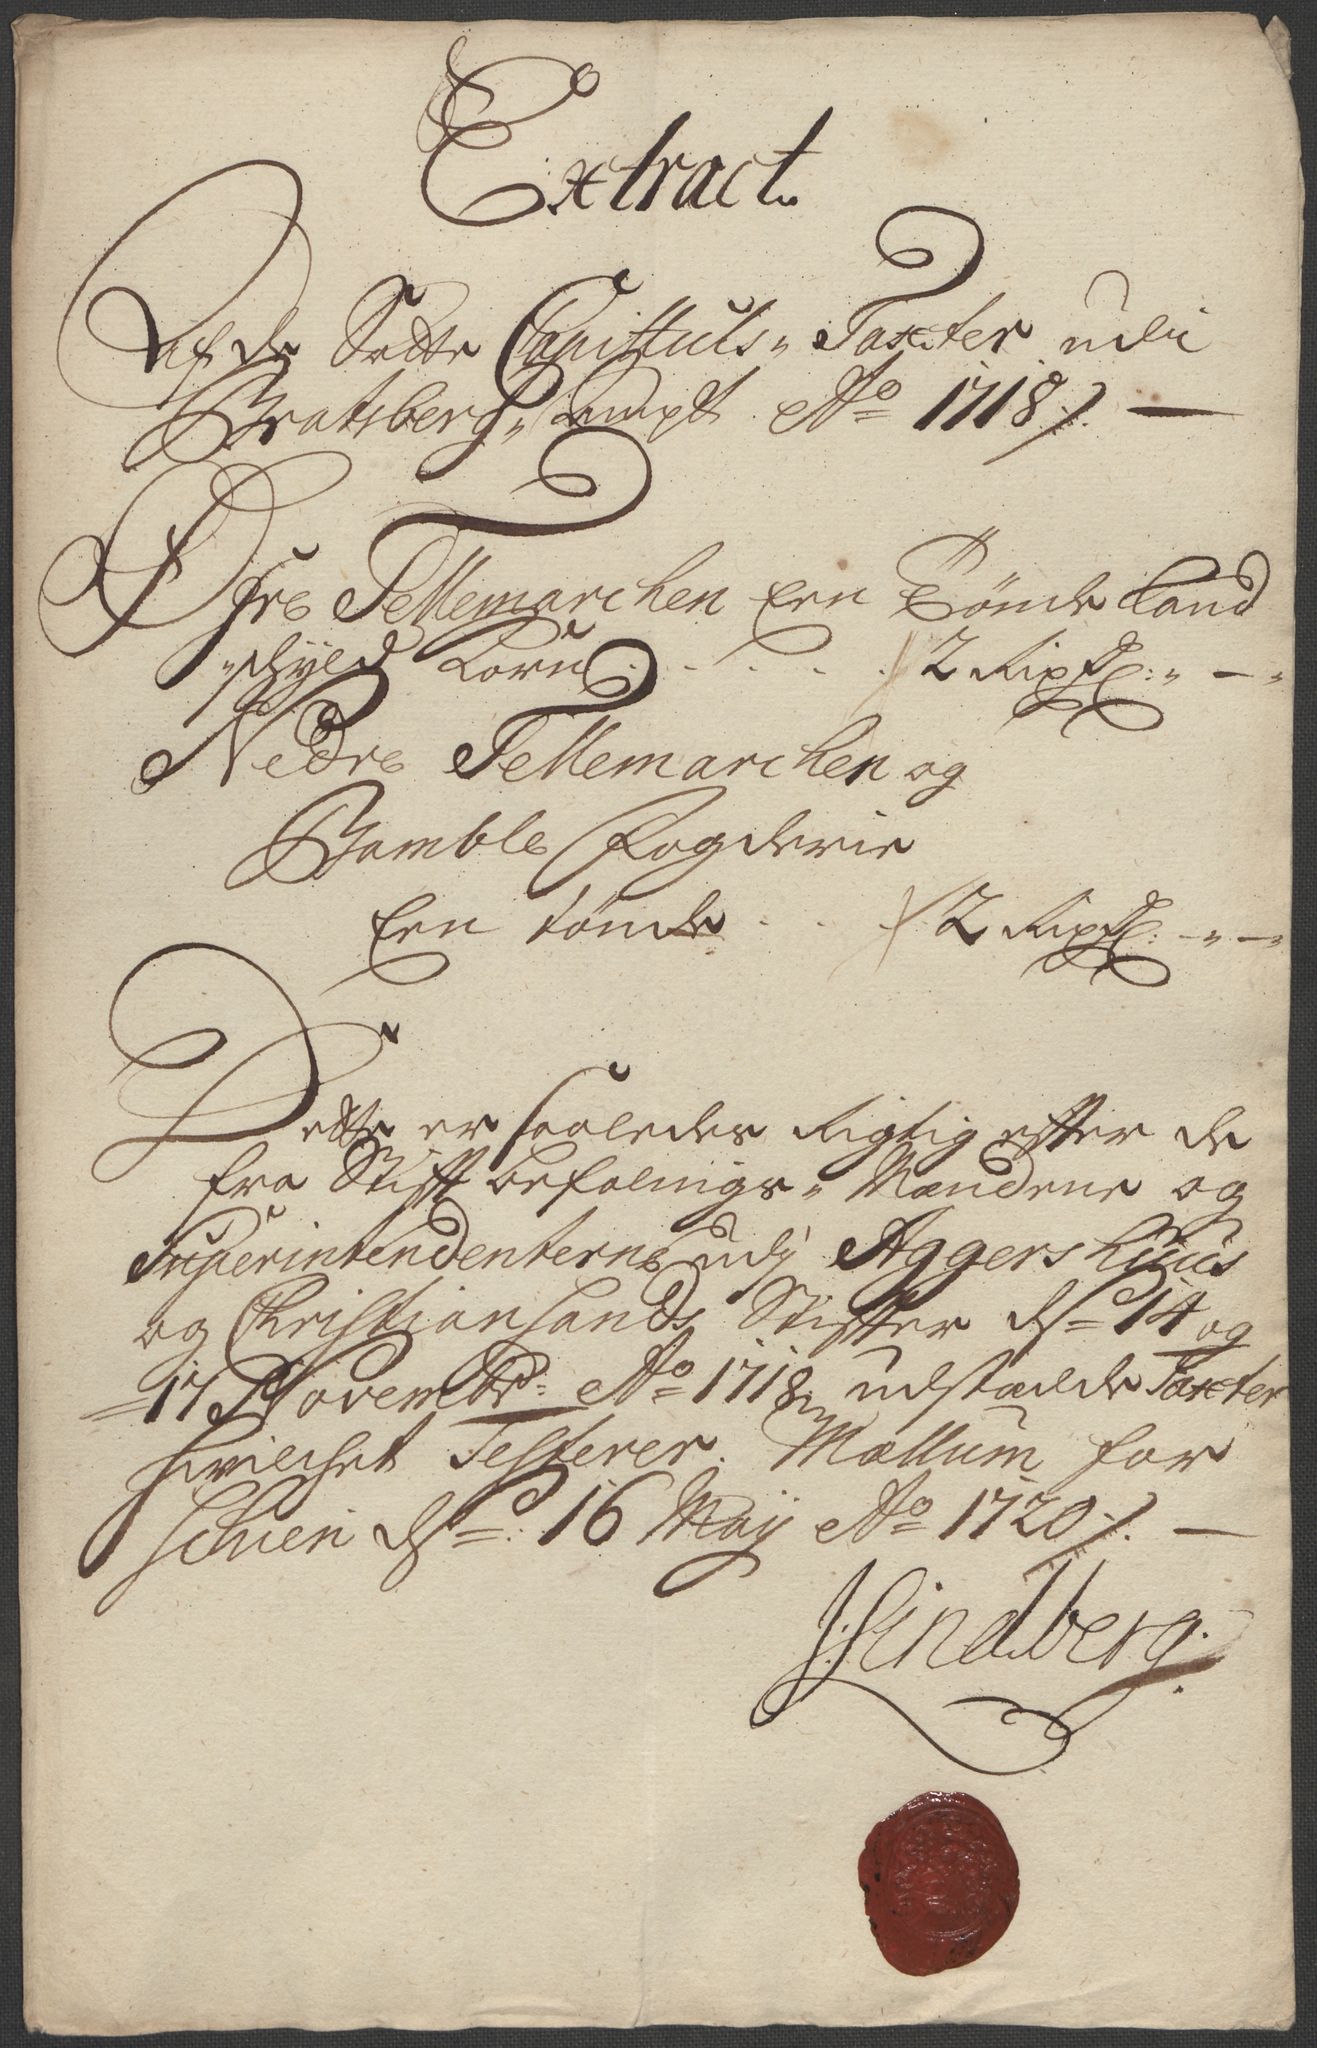 Extract
Af de Satte Capittuls-Taxter udi
Bratsberg-Ampt Ao 1718 /. —
Øfre Tellemarchen Een Tönde Land
schyld Korn . . . . . 2 Rixdl: - — -
Nedre Tellemarchen og
Bamble Fogderie
Een tönde . . . 2 Rixdl: - - —
Dette er saaledes Rigtig efter de
fra Stift befalings-Mændene og
Superintendenterne udj Aggershuus
og Christiansands Stifter ds 14 og
17 Novembr: Ao 1718 udstædde Taxter
hvilchet Testerer. Mællum for
Schien ds: 16 Maij Ao 1720 /. —
J: Lindberg.